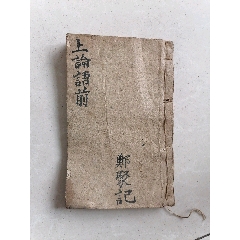 上論語前
鄭聚記